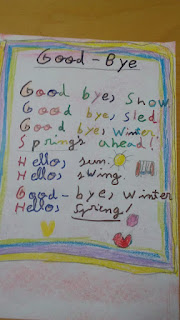 Good - Bye
Good bye, Snow.
Good bye, Sled.
Good bye, Winter.
Springs ahead!
Hello, sun.
Hello, swing.
Good - bye, Winter
Hello, Spring!